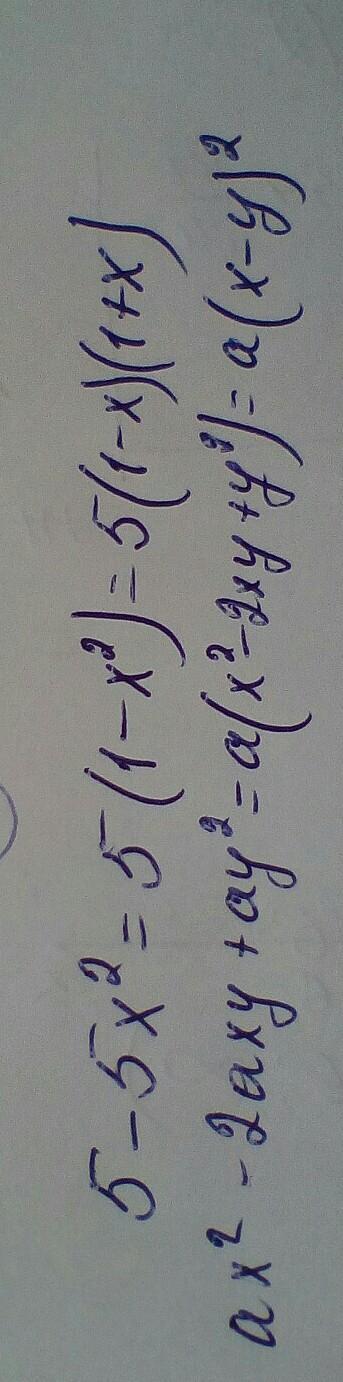 5-5x²=5(1-x²)=5(1-x)(1+x)
ax²-2axy+ay²=a(x²-2xy+y²)=a(x-y)²